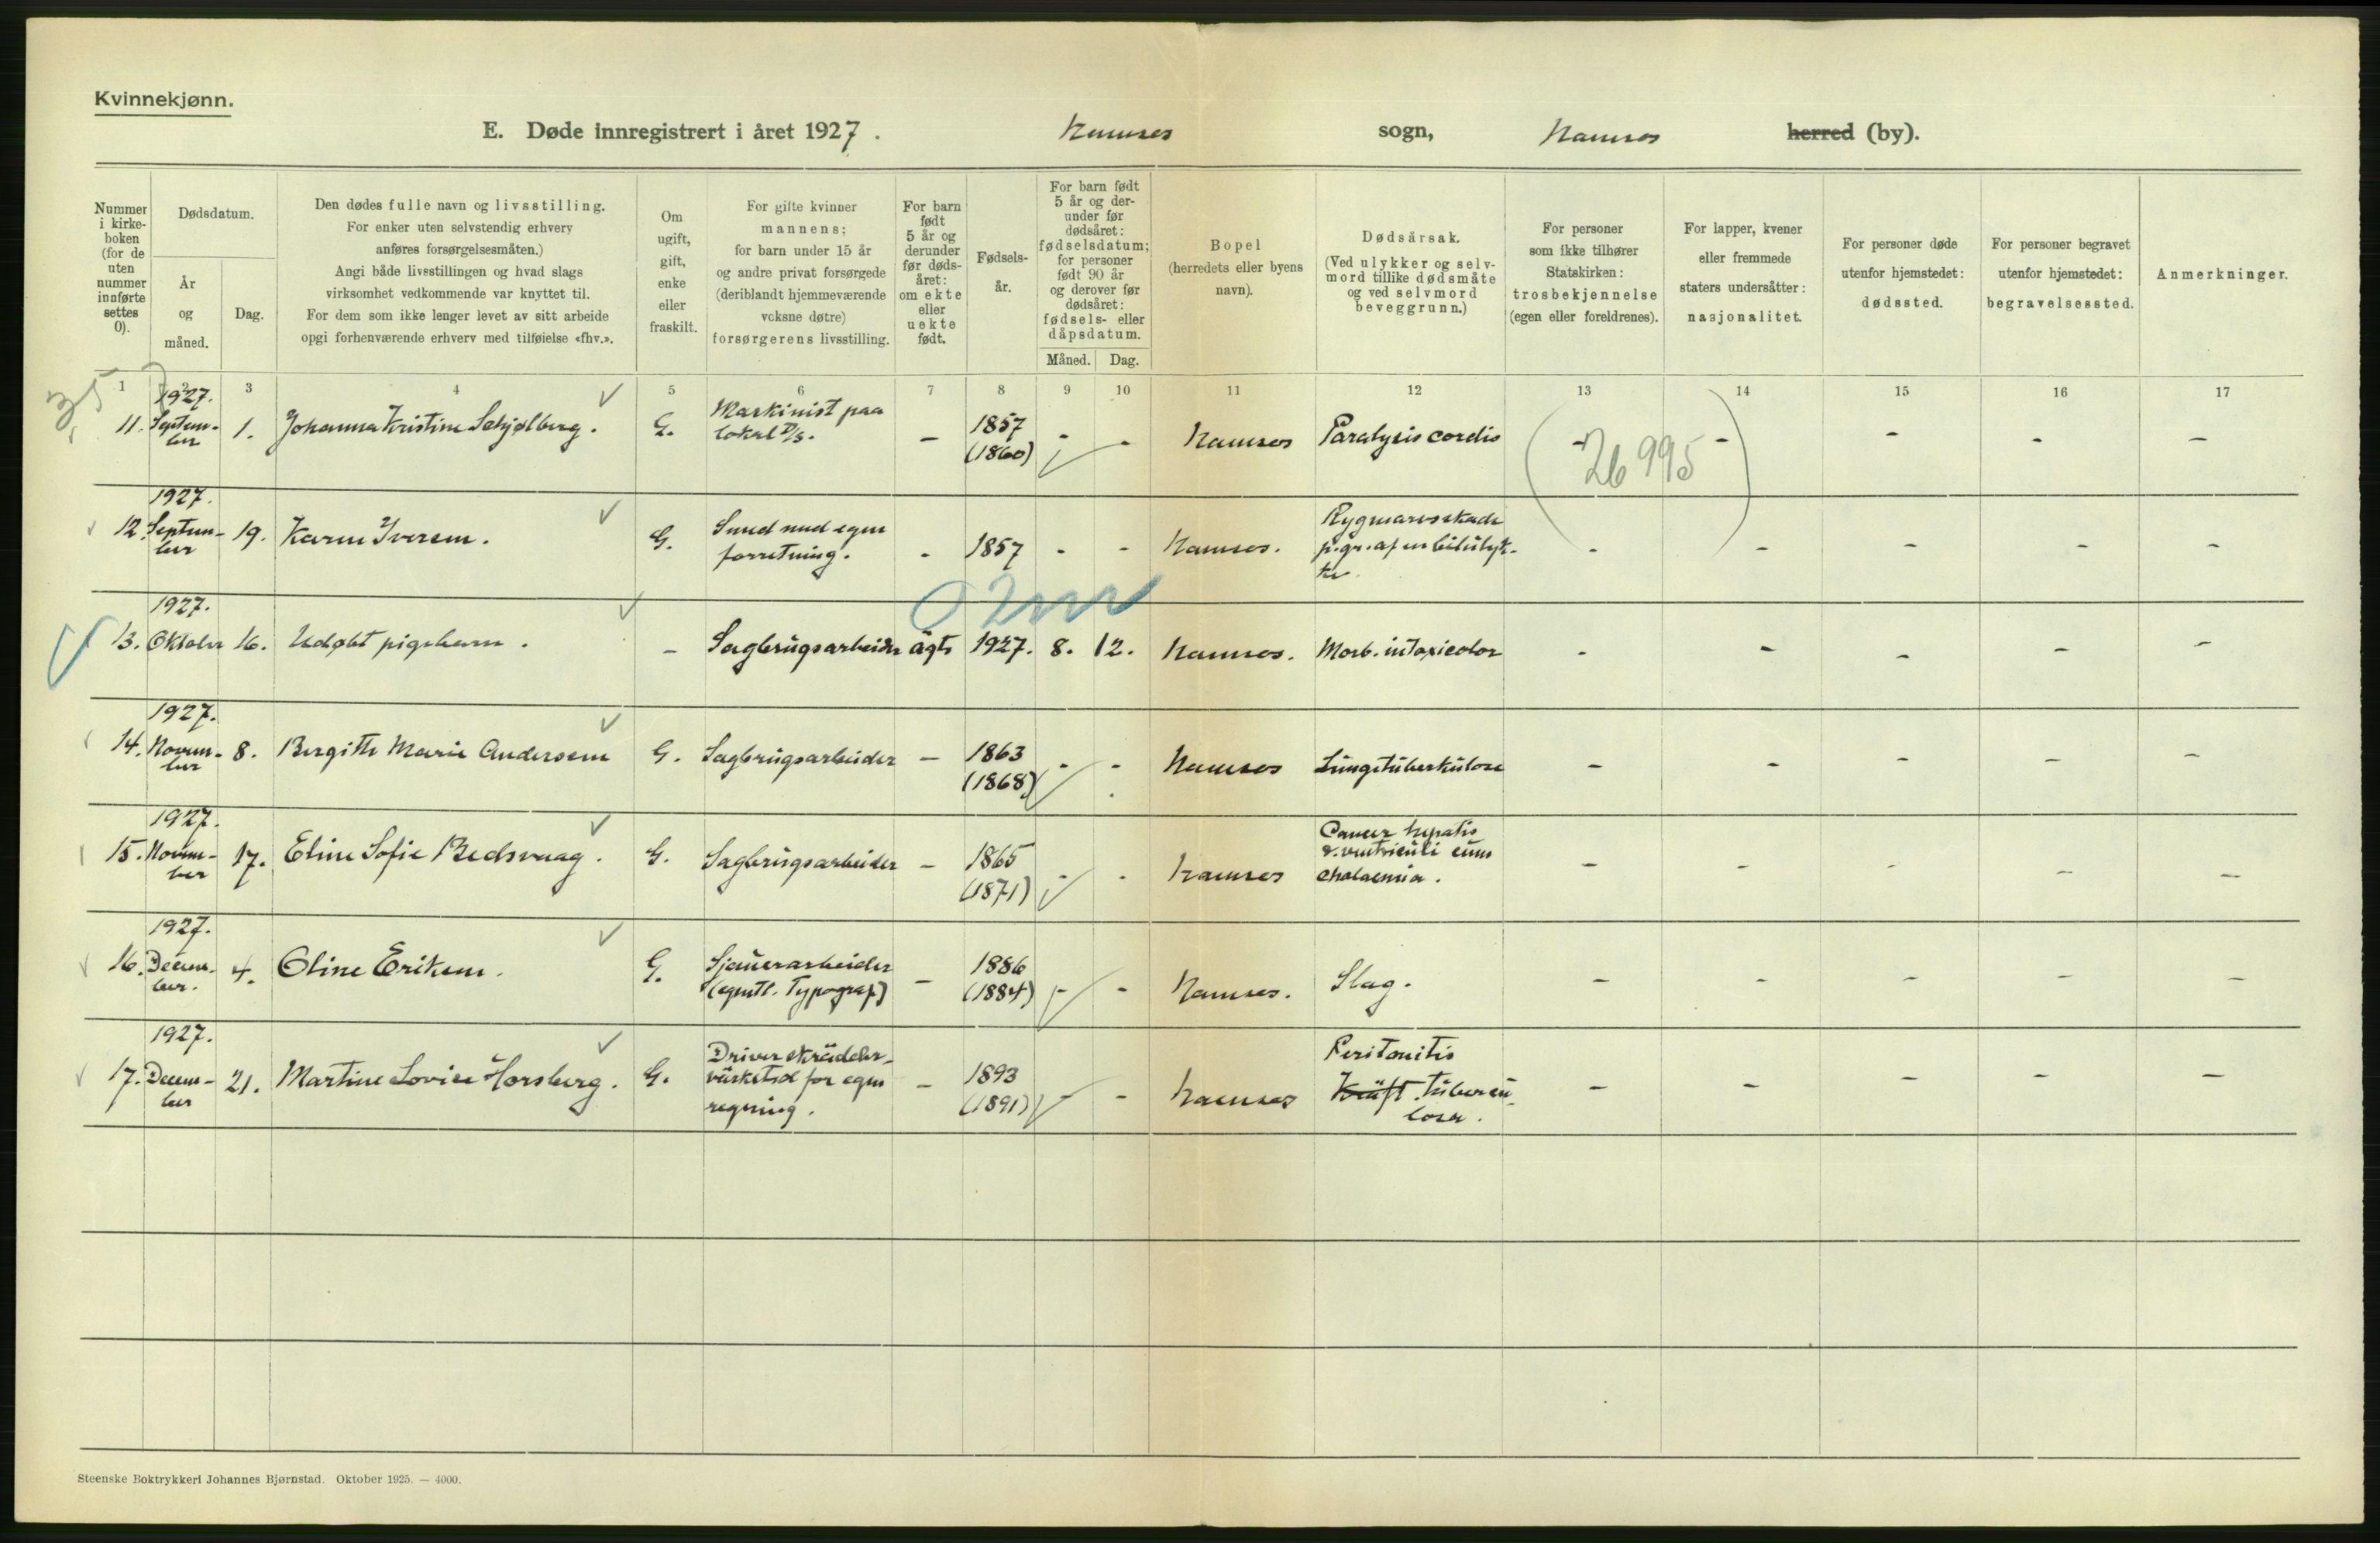 Kvinnekjønn.
E. Døde innregistrert i året 1927. Namsos sogn, Namsos herred (by).
Nummer i kirke-boken (for de uten nummer innførte settes 0).
Dødsdatum.
År og måned.
Dag.
Den dødes fulle navn og livsstilling.
For enker uten selvstendig erhverv
anføres forsørgelsesmåten.)
Angi både livsstillingen og hvad slags
virksomhet vedkommende var knyttet til.
For dem som ikke lenger levet av sitt arbeide
opgi forhenværende erhverv med tilføielse «fhv.».
Om ugift, gift, enke eller fraskilt.
For gifte kvinner
mannens;
for barn under 15 år
og andre privat forsørgede
(deriblandt hjemmeværende
voksne døtre)
forsørgerens livsstilling.
For barn født 5 år og derunder før døds-året: om ekte eller uekte født.
Fødsels-år.
For barn født 5 år og der-under før dødsåret: fødselsdatum; for personer født 90 år og derover før dødsåret: fødsels- eller dåpsdatum.
Måned. Dag.
Bopel
(herredets eller byens
navn).
Dødsårsak.
(Ved ulykker og selv-
mord tillike dødsmåte
og ved selvmord
beveggrunn.)
For personer
som ikke tilhører
Statskirken:
trosbekjennelse
(egen eller foreldrenes).
For lapper, kvener
eller fremmede
staters undersåtter:
nasjonalitet.
For personer døde
utenfor hjemstedet:
dødssted.
For personer begravet
utenfor hjemstedet:
begravelsessted.
Anmerkninger.
1 2 3 4 5 6 7 8 9 10 11 12 13 14 15 16 17
35
11. 1927. Septem-ber 1. Johanna Kristine Schjølberg. G. Maskinist paa lokal D/S. - 1857 (1860) - - Namsos Paralysis cordis - - - - -
26995
12. 1927. Septem-ber 19. Karen Iversen. G. Smed med egen forretning. - 1857 - - Namsos. Rygmarvsskade p.gr. af en bilulyk-ke. - - - - -
13. 1927. Oktober 16. Udøbt pigebarn. - Sagbrugsarbeider ägte 1927. 8. 12. Namsos. Morb. intoxicolor - - - - -
14. 1927. Novem-ber 8. Bergitte Marie Andersen G. Sagbrugsarbeider - 1863 (1868) - - Namsos Lungetuberkulose - - - - -
15. 1927. Novem-ber 17. Eline Sofie Redsvaag. G. Sagbrugsarbeider - 1865 (1871) - - Namsos Cancer hepatis & ventriculi cum cholaemia. - - - - -
16. 1927. Decem-ber. 4. Oline Eriksen. G. Sjauerarbeider (egentl. Typograf) - 1886 (1884) - - Namsos. Slag. - - - - -
17. 1927. Decem-ber 21. Martine Lovise Horsberg. G. Driver skrädder-värksted for egen regning. - 1893 (1891) - - Namsos Peritonitis Kräft. tubercu-losa. - - - - -
Steenske Boktrykkeri Johannes Bjørnstad. Oktober 1925. — 4000.